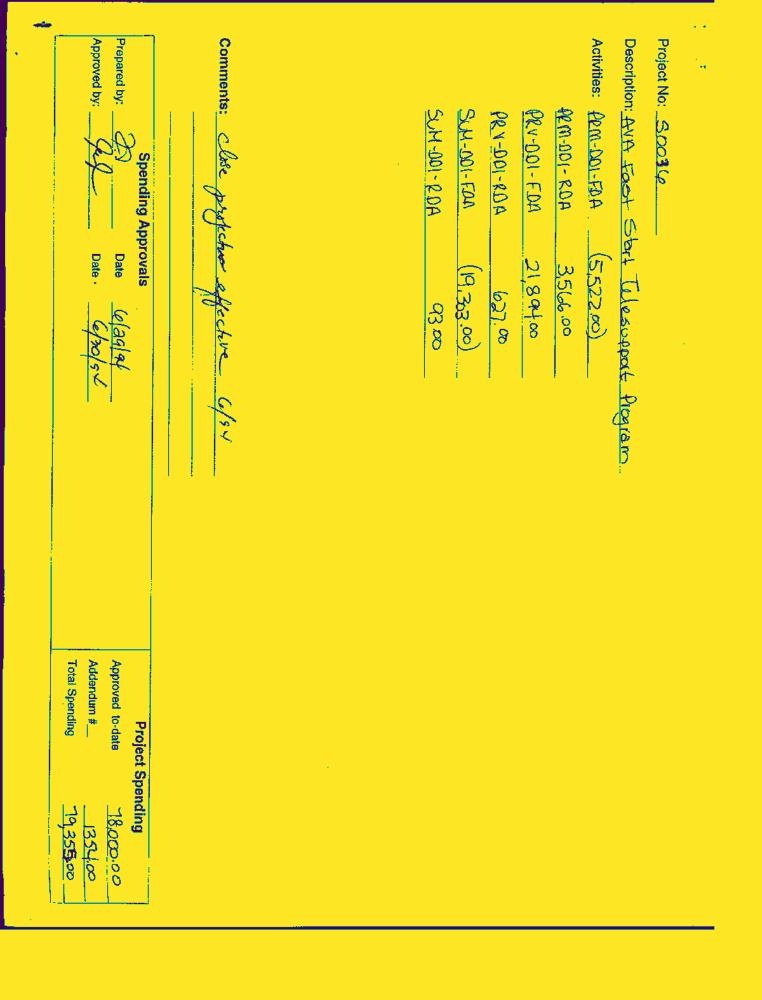 Project No: S0036
Description: AVA Fast Start Telesupport Program
Activities: PRM-001-FDA (5,522.00)
PRM-001-RDA 3,566.00
PRV-001-FDA 21,894.00
PRV-001-RDA 627.00
SUM-001-FDA (19,303.00)
SUM-001-RDA 93.00
Comments: Close project effective 6/94
Spending Approvals
Prepared by: Date 6/29/94
Approved by: Date 6/30/94
Project Spending
Approved to-date 78,000.00
Addendum #__ 1354.00
Total Spending 79,355.00